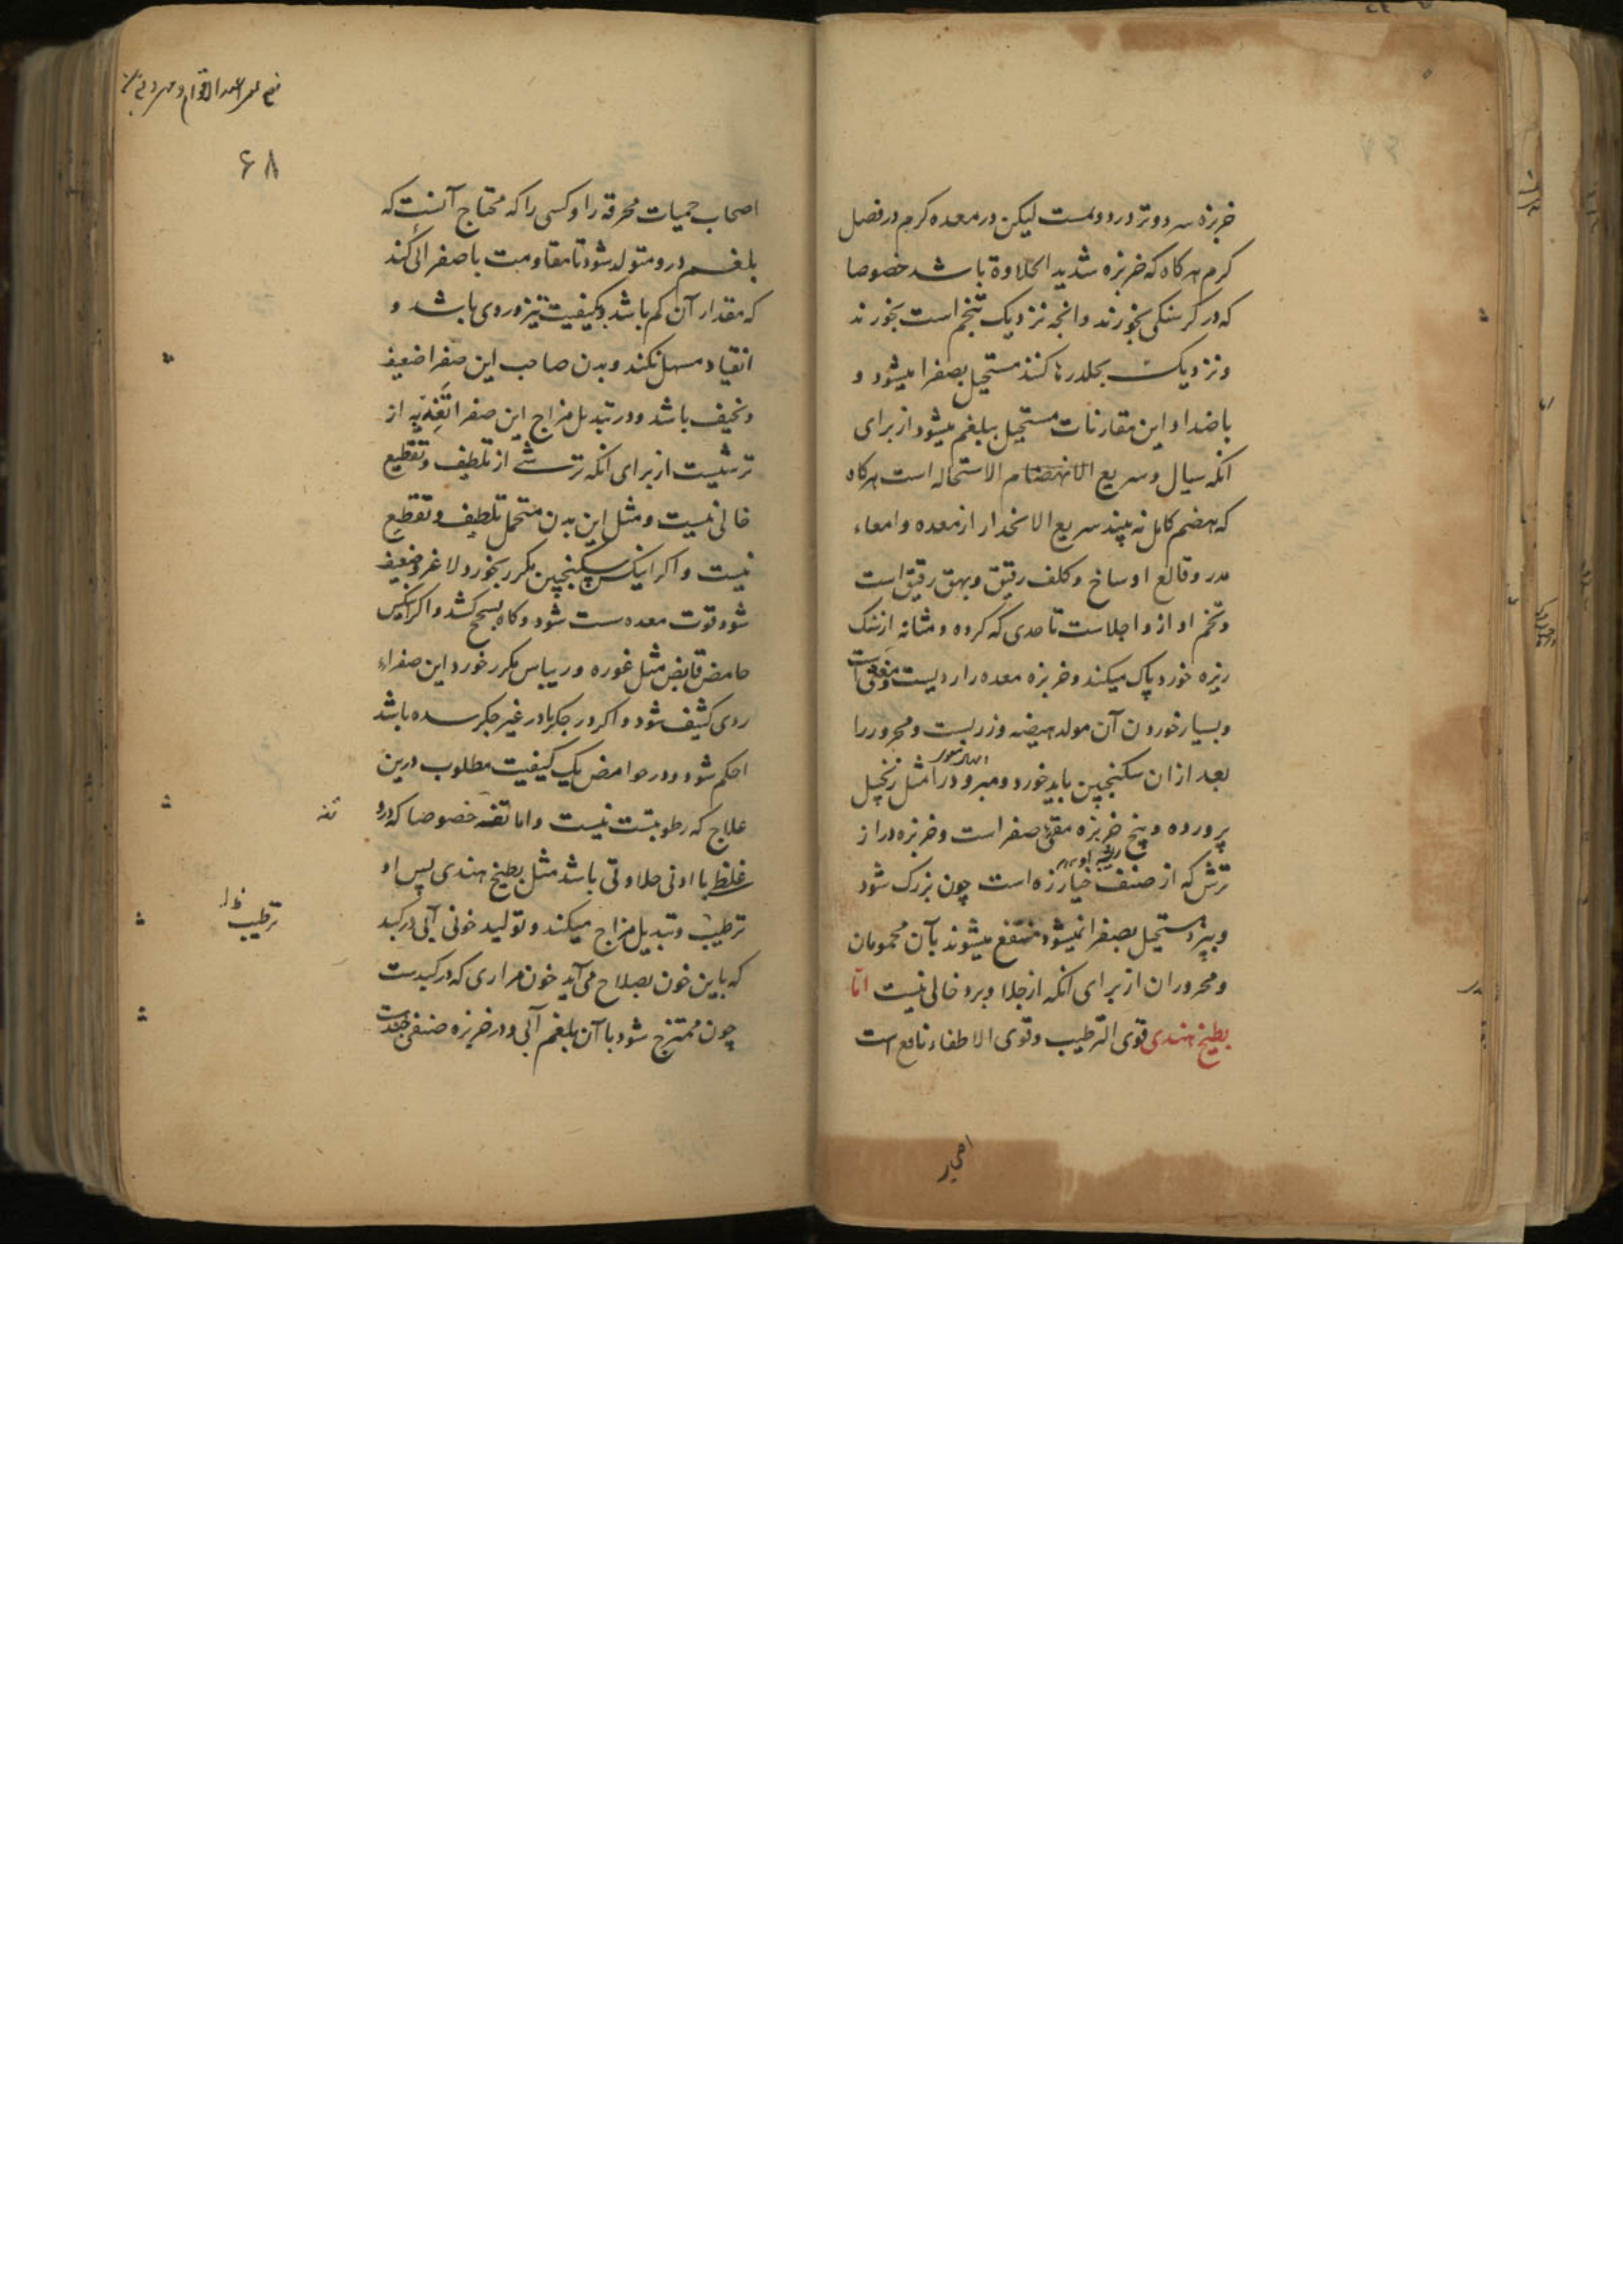 خربزه سرد و تر در دومست لیکن در معده کرم در فصل
کرم هرکاه که خربزه شدید الحلاوة باشد خصوصا
که در کرسنکی بخورند و انچه نزدیک تخم است بخورند
و نزدیک بجلد رها کنند مستحیل بصفرا میشود و
باضداد این مقارنات مستحیل ببلغم میشود از برای
انکه سیال و سریع الانهضام الاستحاله است هرکاه
که هضم کامل نه بیند سریع الانحدار از معده و امعاء
مدر و قالع اوساخ و کلف رقیق و بهق رقیق است
و تخم او از و اجلاست تا حدی که کرده و مثانه از سنک
ریزه خورد پاک میکند و خربزه معده را ردیست و مغثی است
و بسیار خوردن آن مولد هیضه و زربست و محرور را
بعد از ان سکنجبین باید خورد و مبرود را مثل زنجبیل
پرورده و بیخ خربزه مقئ صفراست و خربزه دراز
ترش که از صنف خیارزه است چون بزرک شود
و بپزد مستحیل بصفرا نمیشود منتفع میشوند بآن محمومان
و محروران از برای انکه از جلا و برد خالی نیست اما
بطیخ هندی قوی الترطیب و قوی الاطفاء نافع است
اصحاب
۶۸
اصحاب حمیات محرقه را و کسی را که محتاج آنست که
بلغم درو متولد شود تا مقاومت با صفرائی کند
که مقدار آن کم باشد و بکیفیت تیز و ردی باشد و
انقیاد مسهل نکند و بدن صاحب این صفرا ضعیف
و نحیف باشد و در تبدیل مزاج این صفرا تغذیه از
ترشیست از برای انکه ترشی از تلطیف و تقطیع
خالی نیست و مثل این بدن متحمل تلطیف و تقطیع
نیست و اکر اینکس سکنجبین مکرر بخورد لاغر و ضعیف
شود قوت معده سست شود و کاه بسحج کشد و اکر اینکس
حامض قابض مثل غوره و ریباس مکرر خورد این صفراء
ردی کثیف شود و اکر در جکر یا در غیر جکر سده باشد
احکم شود و در حوامض یک کیفیت مطلوب درین
علاج که رطوبتست نیست و اما تفه خصوصا که درو
تفه
غلظ با ادنی حلاوتی باشد مثل بطیخ هندی پس او
ترطیب و تبدیل مزاج میکند و تولید خونی آبی در کبد
ترطیب ظ
که باین خون بصلاح می‌آید خون مراری که در کبدست
چون ممتزج شود با آن بلغم آبی و در خربزه صنفی چندست